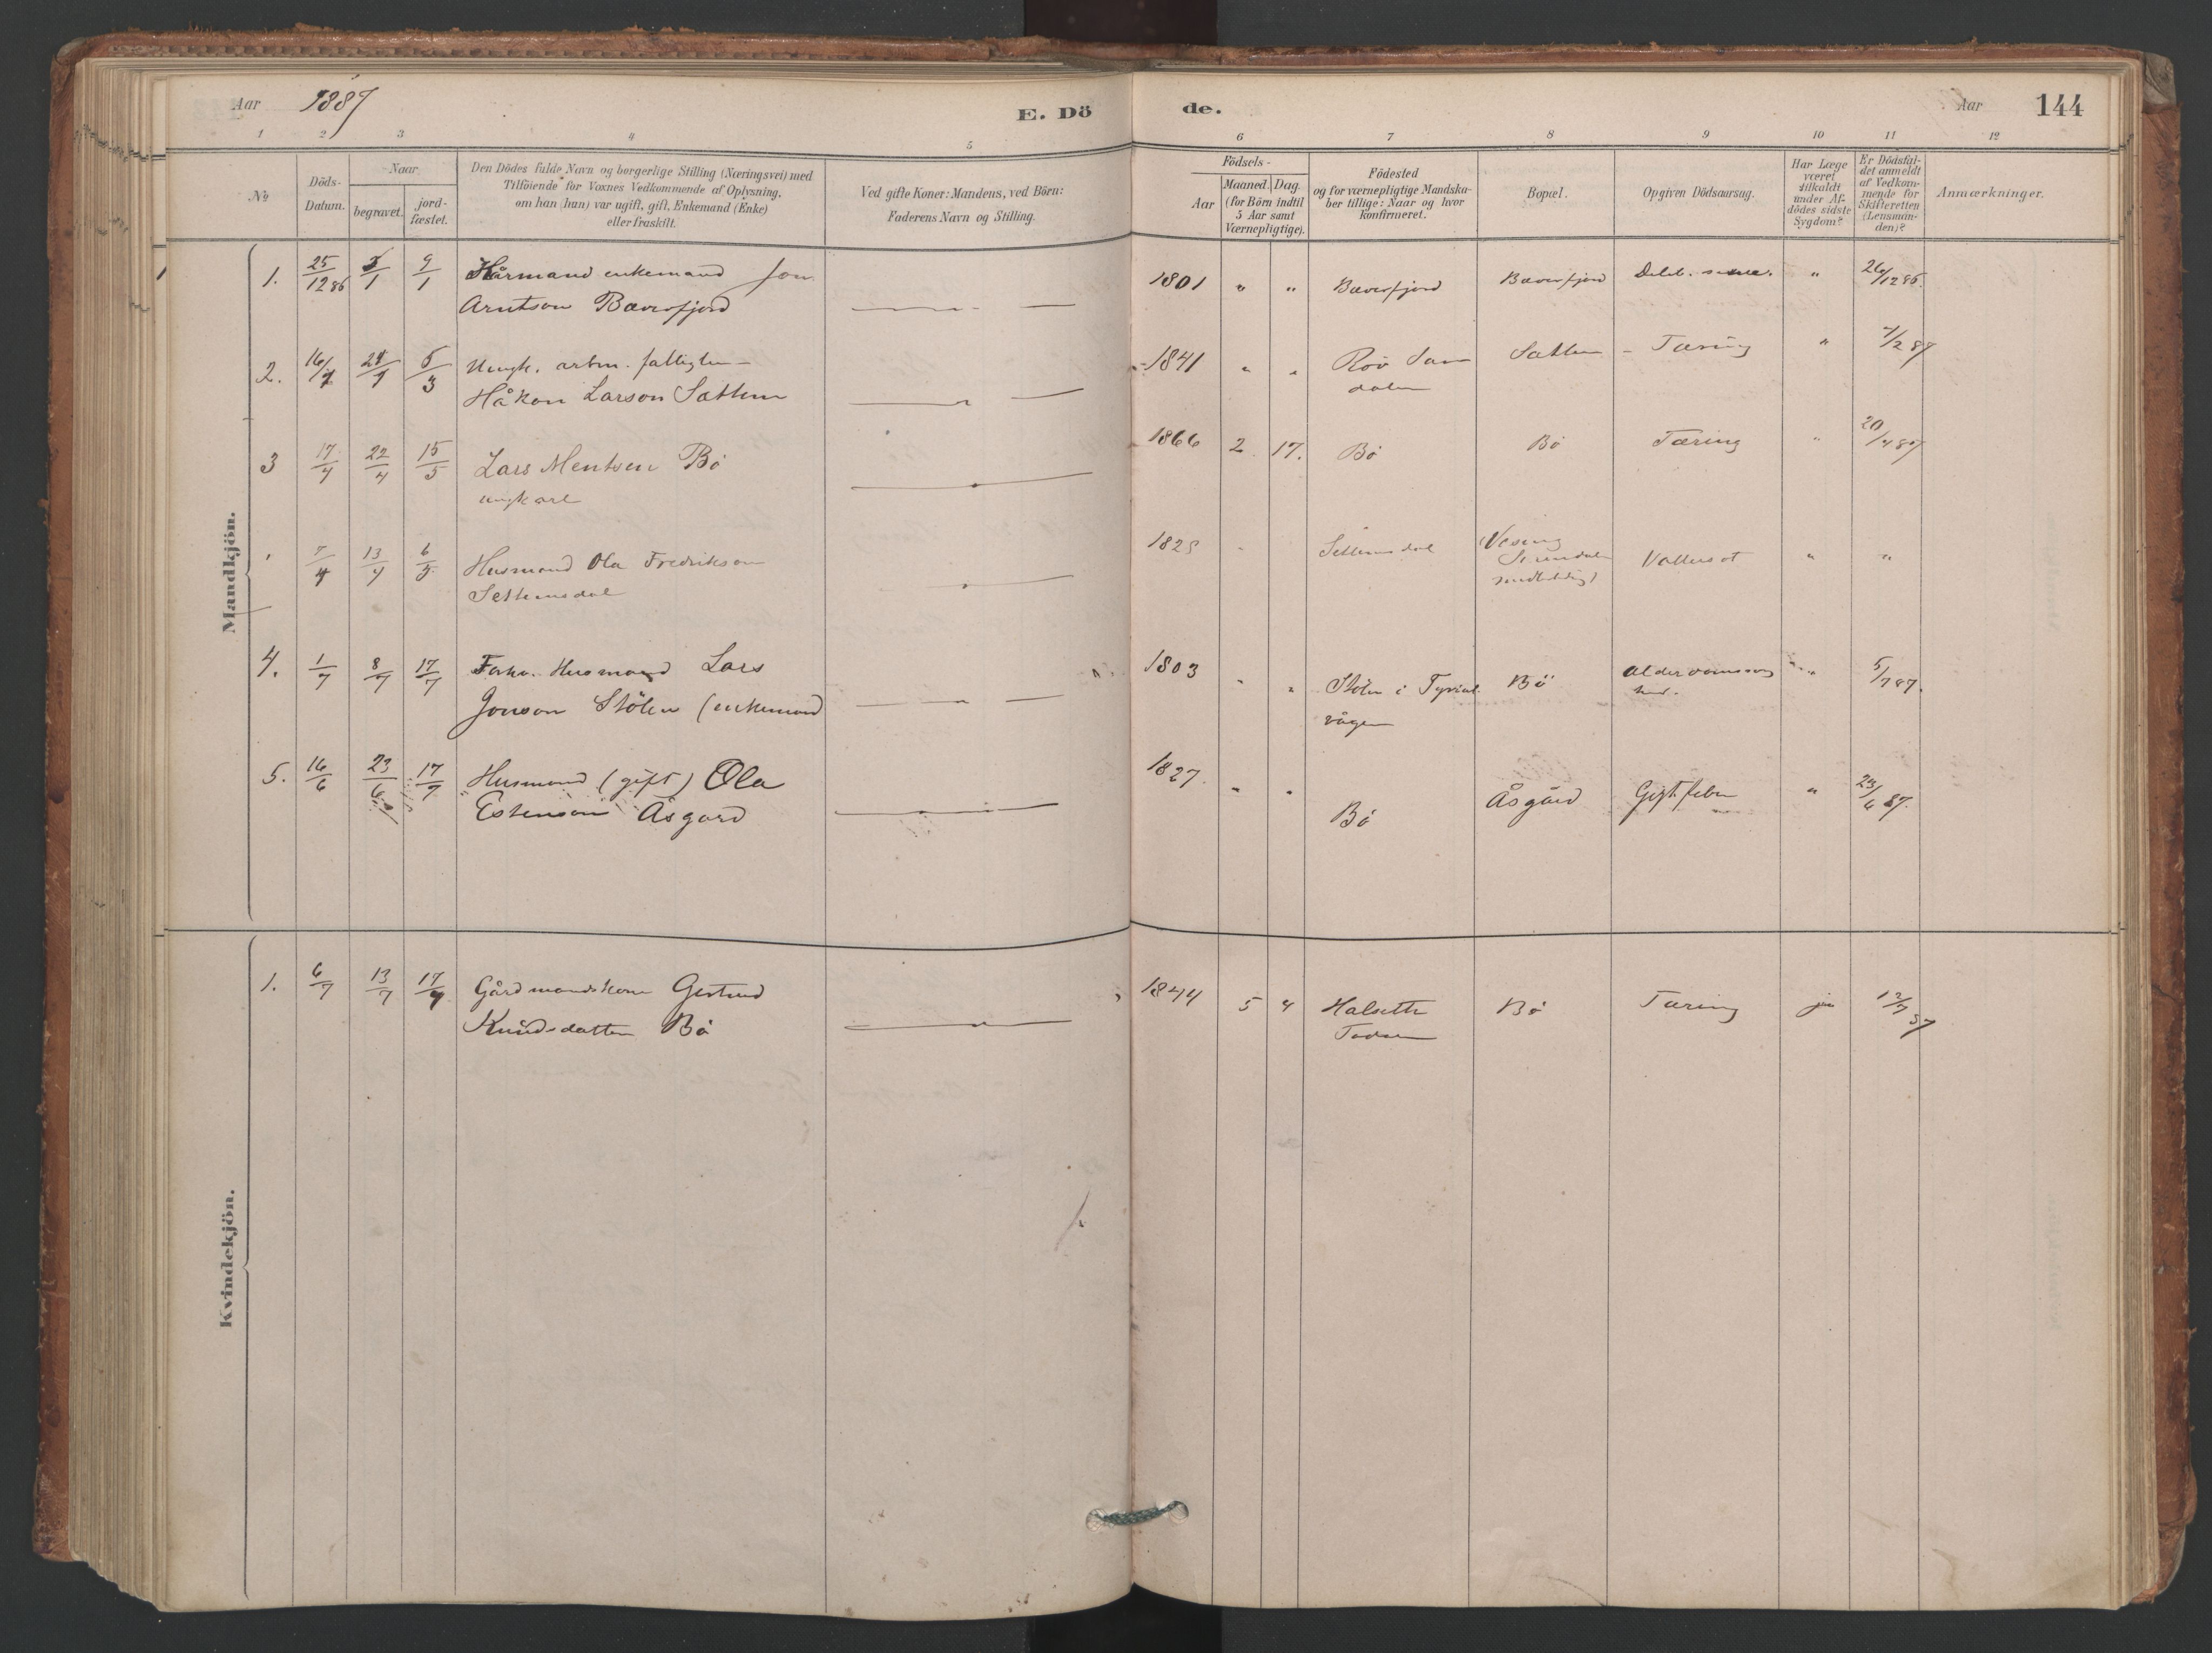 Aar 1887
E. Döde.
Aar 144
1 2 3 4 5 6 7 8 9 10 11 12
No
Döds-Datum.
Naar
begravet.
jord-fæstet.
Den Dödes fulde Navn og borgerlige Stilling (Næringsvei) med
Tilföiende for Voxnes Vedkommende af Oplysning,
om han (hun) var ugift, gift, Enkemand (Enke)
eller fraskilt.
Ved gifte Koner: Mandens, ved Börn:
Faderens Navn og Stilling.
Födsels-
Aar
Maaned. Dag.
(for Börn indtil
5 Aar samt
Værnepligtige).
Födested
og for værnepligtige Mandska-
ber tillige: Naar og hvor
konfirmeret.
Bopæl.
Opgiven Dödsaarsag.
Har Læge
været
tilkaldt
under Af-
dödes sidste
Sygdom?
Er Dödsfal-
det anmeldt
af Vedkom-
mende for
Skifteretten
(Lensman-
den)?
Anmærkninger.
Mandkjön.
1. 25/12 86 5/1 9/1 Kårmand enkemand Jon 1801 " " Bæverfjord Bæverfjord " 26/12 86.
Arntson Bæverfjord
2. 16/1 24/1 5/3 Ungk. arbm. fattiglem 1841 " " Röv Sættem Tæring " 7/2 87
Håkon Larson Sættem
dalen
3 17/4 22/4 15/5 Lars Mentsen Bö 1866 2. 17. Bö Bö Tæring " 20/4 87
ungkarl
" 7/4 13/4 6/5 Husmand Ola Fredrikson 1829 " Settemsdal Vattersot " "
Settemsdal
4. 1/7 8/7 17/7 Forhv. Husmand Lars 1803 " " Stölen i Bö " 5/7 87.
Jonson Stölen (enkemand
vågen
5. 16/6 23/6 17/7 Husmand (gift) Ola 1827. " " Bö Åsgård Gigtfeber " 23/6 87.
Estenson Åsgård
Kvindekjön.
1. 6/7 13/7 17/7 Gårdmandskone Gjertrud 1844 5 4 Halsette Bö Tæring ja 12/7 87
Knudsdatter Bö